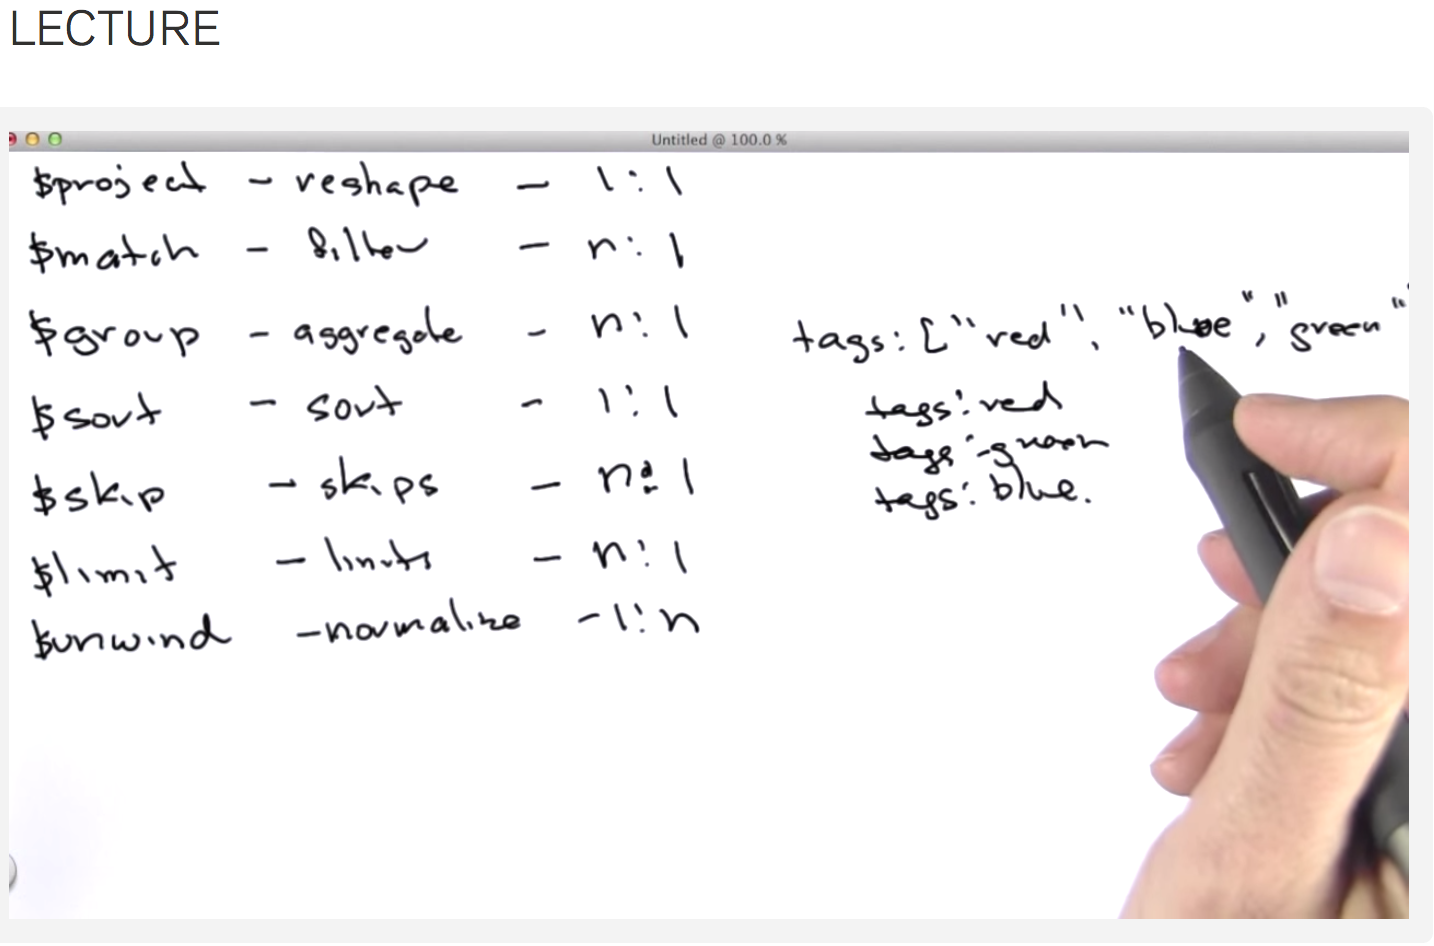 LECTURE
Untitled @ 100.0 %
$project - reshape - 1:1
$match - filter - n:1
$group - aggregate - n:1
$sort - sort - 1:1
$skip - skips - n:1
$limit - limits - n:1
$unwind - normalize - 1:n
tags: ["red", "blue", "green"
tags: red
tags: green
tags: blue.